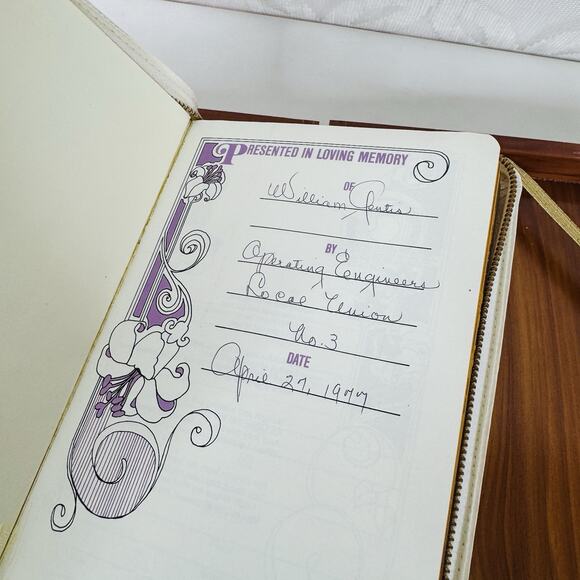 PRESENTED IN LOVING MEMORY
OF
William
BY
Operating Engineers
Local Union
No. 3
DATE
April 27, 1977